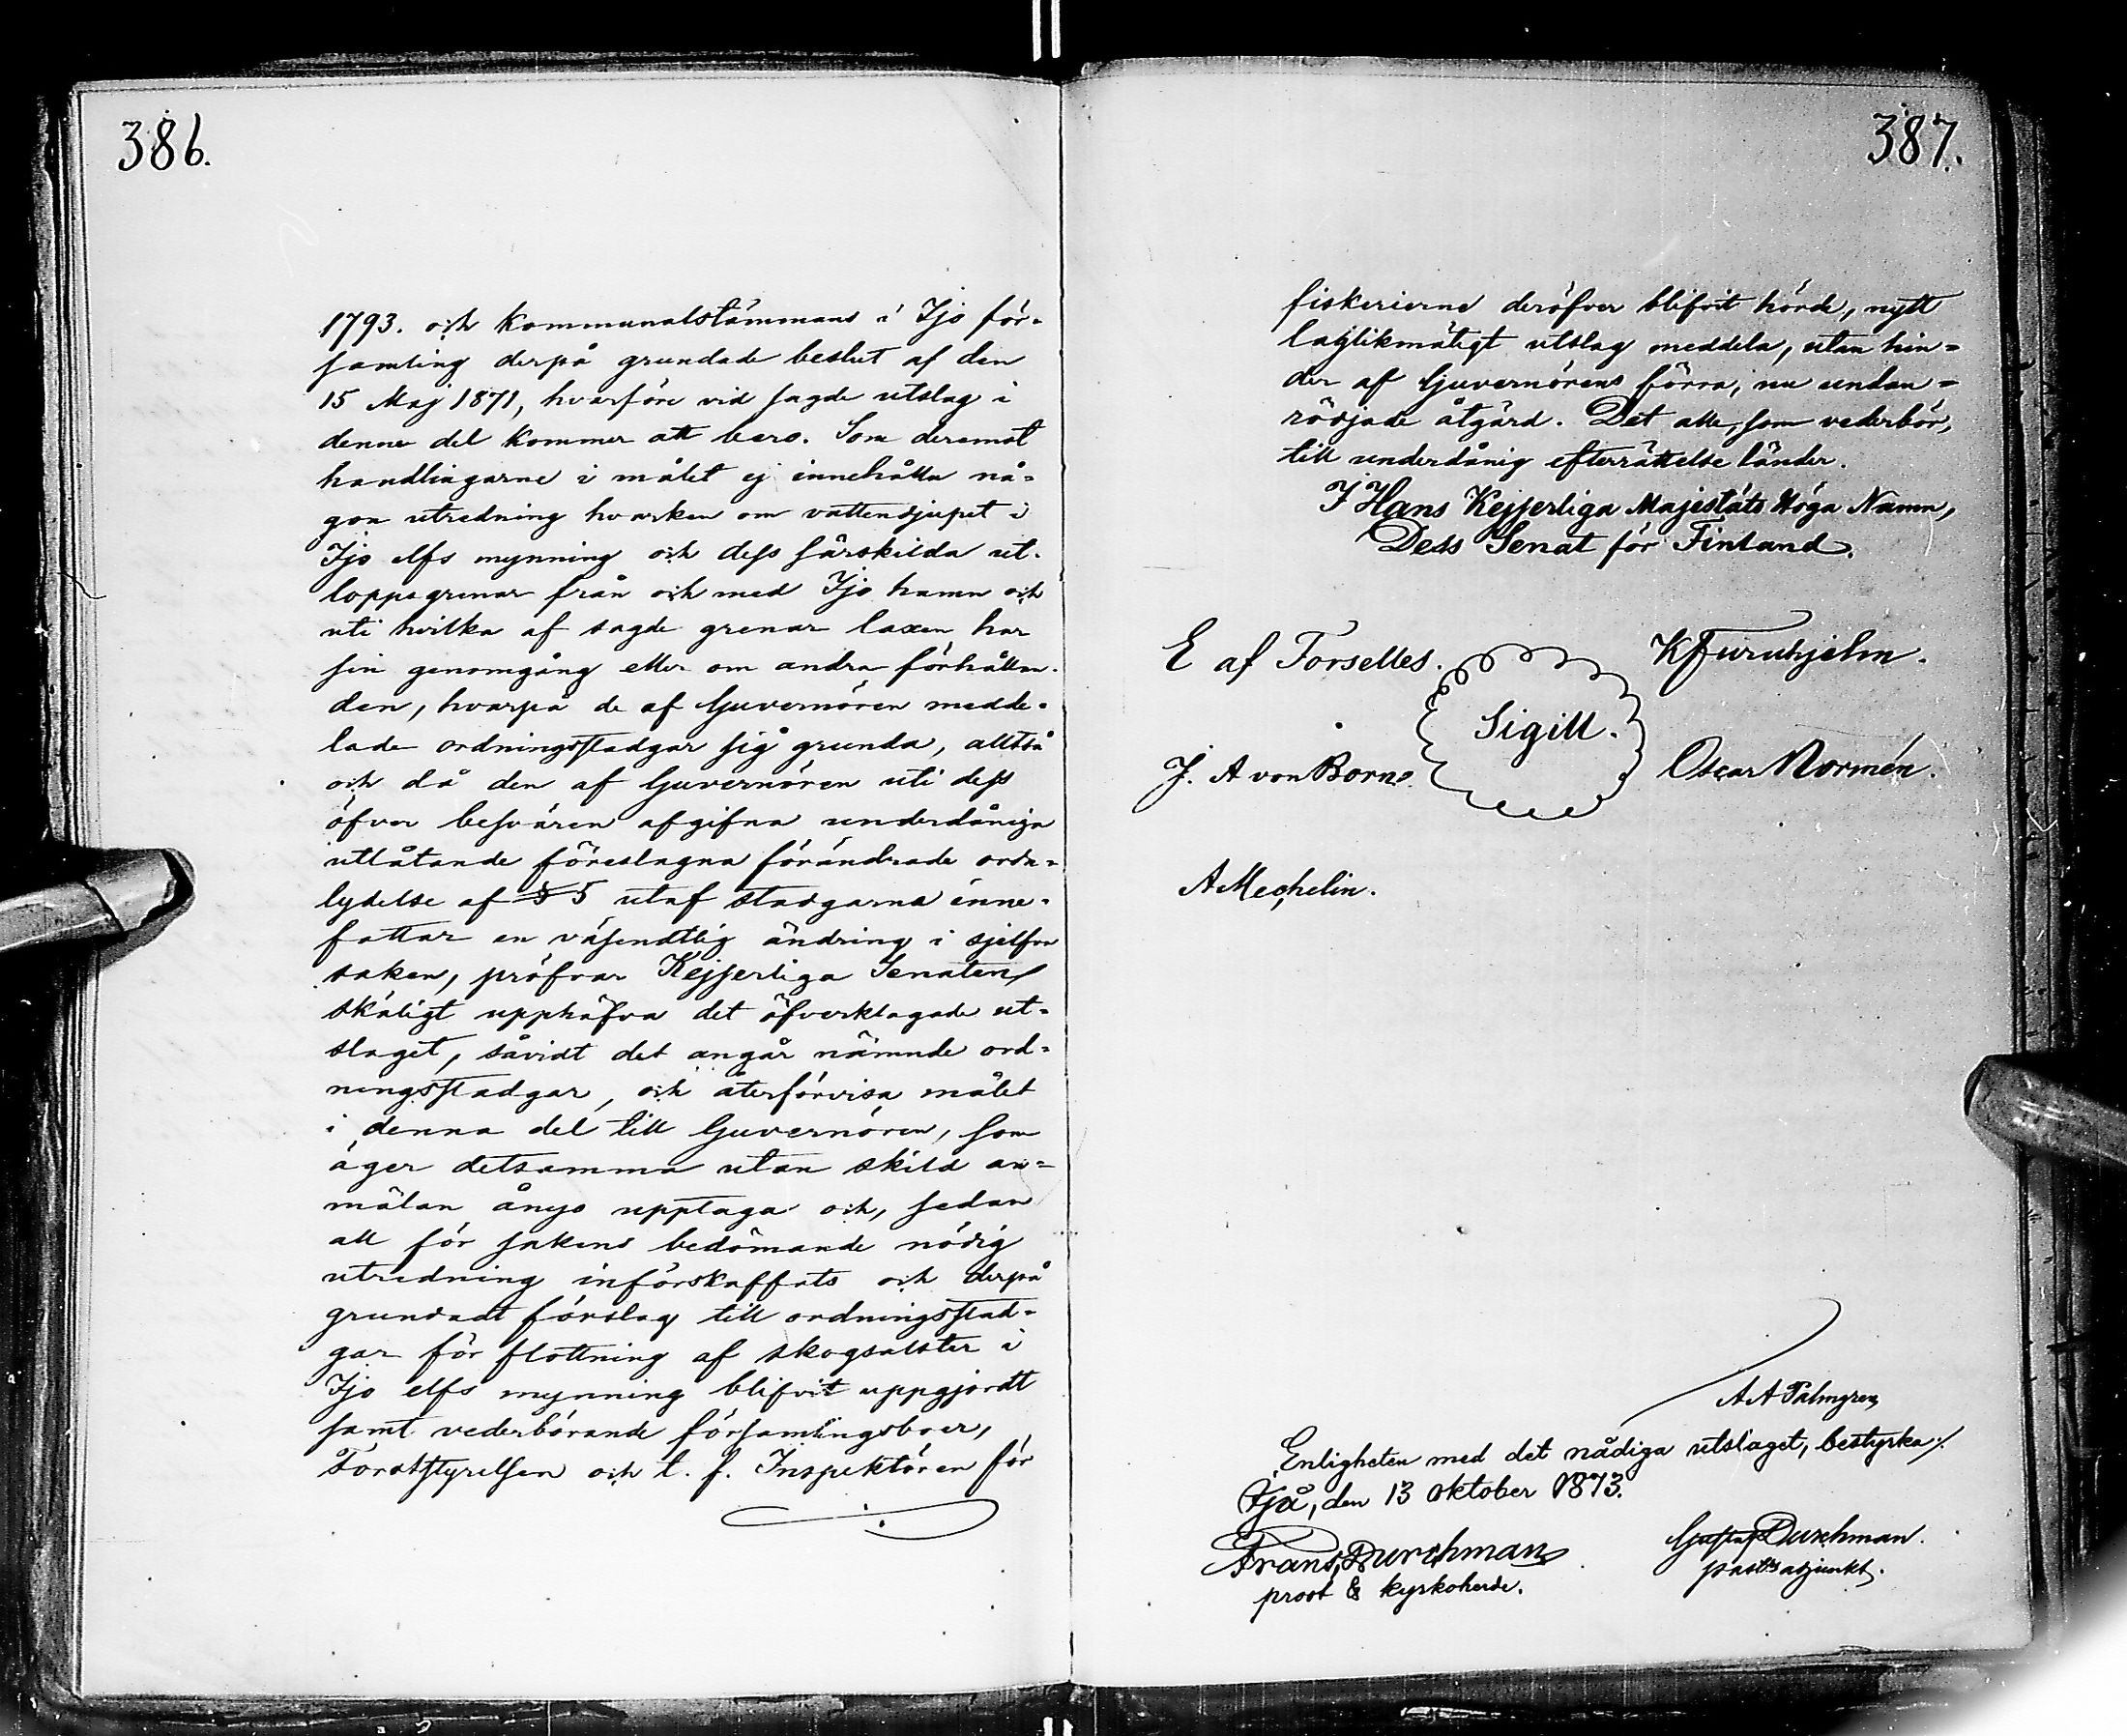 386.
1793. och kommunalstämmans i Ijo för-
samling derpå grundade beslut af den
15 Maj 1871, hvarföre vid sagde utslag i
denna del kommer att bero. Som deremot
handlingarne i målet ej innehålla nå-
gon utredning hvarken om vattendjupet i
Ijo elfs mynning och dess särskilda ut-
loppsgrenar från och med Ijo hamn och
uti hvilka af sagde grenar laxen har
sin genomgång eller om andra förhållan-
den, hvarpå de af Guvernören medde-
lade ordningsstadgar sig grunda, alltså
och då den af Guvernören uti dess
öfver besvären afgifna underdåniga
utlåtande föreslagna förändrade orda-
lydelse af § 5 utaf stadgarna inne-
fattar en väsendtlig ändring i sjelfva
saken, pröfvar Kejserliga Senaten
skäligt upphäfva det öfverklagade ut-
slaget, såvidt det angår nämnde ord-
ningsstadgar, och återförvisa målet
i denna del till Guvernören, som
äger detsamma utan skild an-
mälan ånyo upptaga och, sedan
all för sakens bedömande nödig
utredning införskaffats och derpå
grundadt förslag till ordningsstad-
gar för flottning af skogsalster i
Ijo elfs mynning blifvit uppgjordt
samt vederbörande församlingsboer,
Forststyrelsen och t. f. Inspektören för
387.
fiskerierne deröfver blifvit hörde, nytt
laglikmätigt utslag meddela, utan hin-
der af Guvernörens förra, nu undan-
rödjade åtgärd. Det alle, som vederbör,
till underdånig efterrättelse länder.
I Hans Kejserliga Majestäts Höga Namn,
Dess Senat för Finland.
E af Forselles. K Furuhjelm.
Sigill.
J. A von Born. Oscar Norrmén.
A Mechelin.
A A Palmgren
Enligheten med det nådiga utslaget, bestyrka;
Ijå, den 13 Oktober 1873.
Frans Durchman Gustaf Durchman.
prost & kyrkoherde. past:s adjunkt.